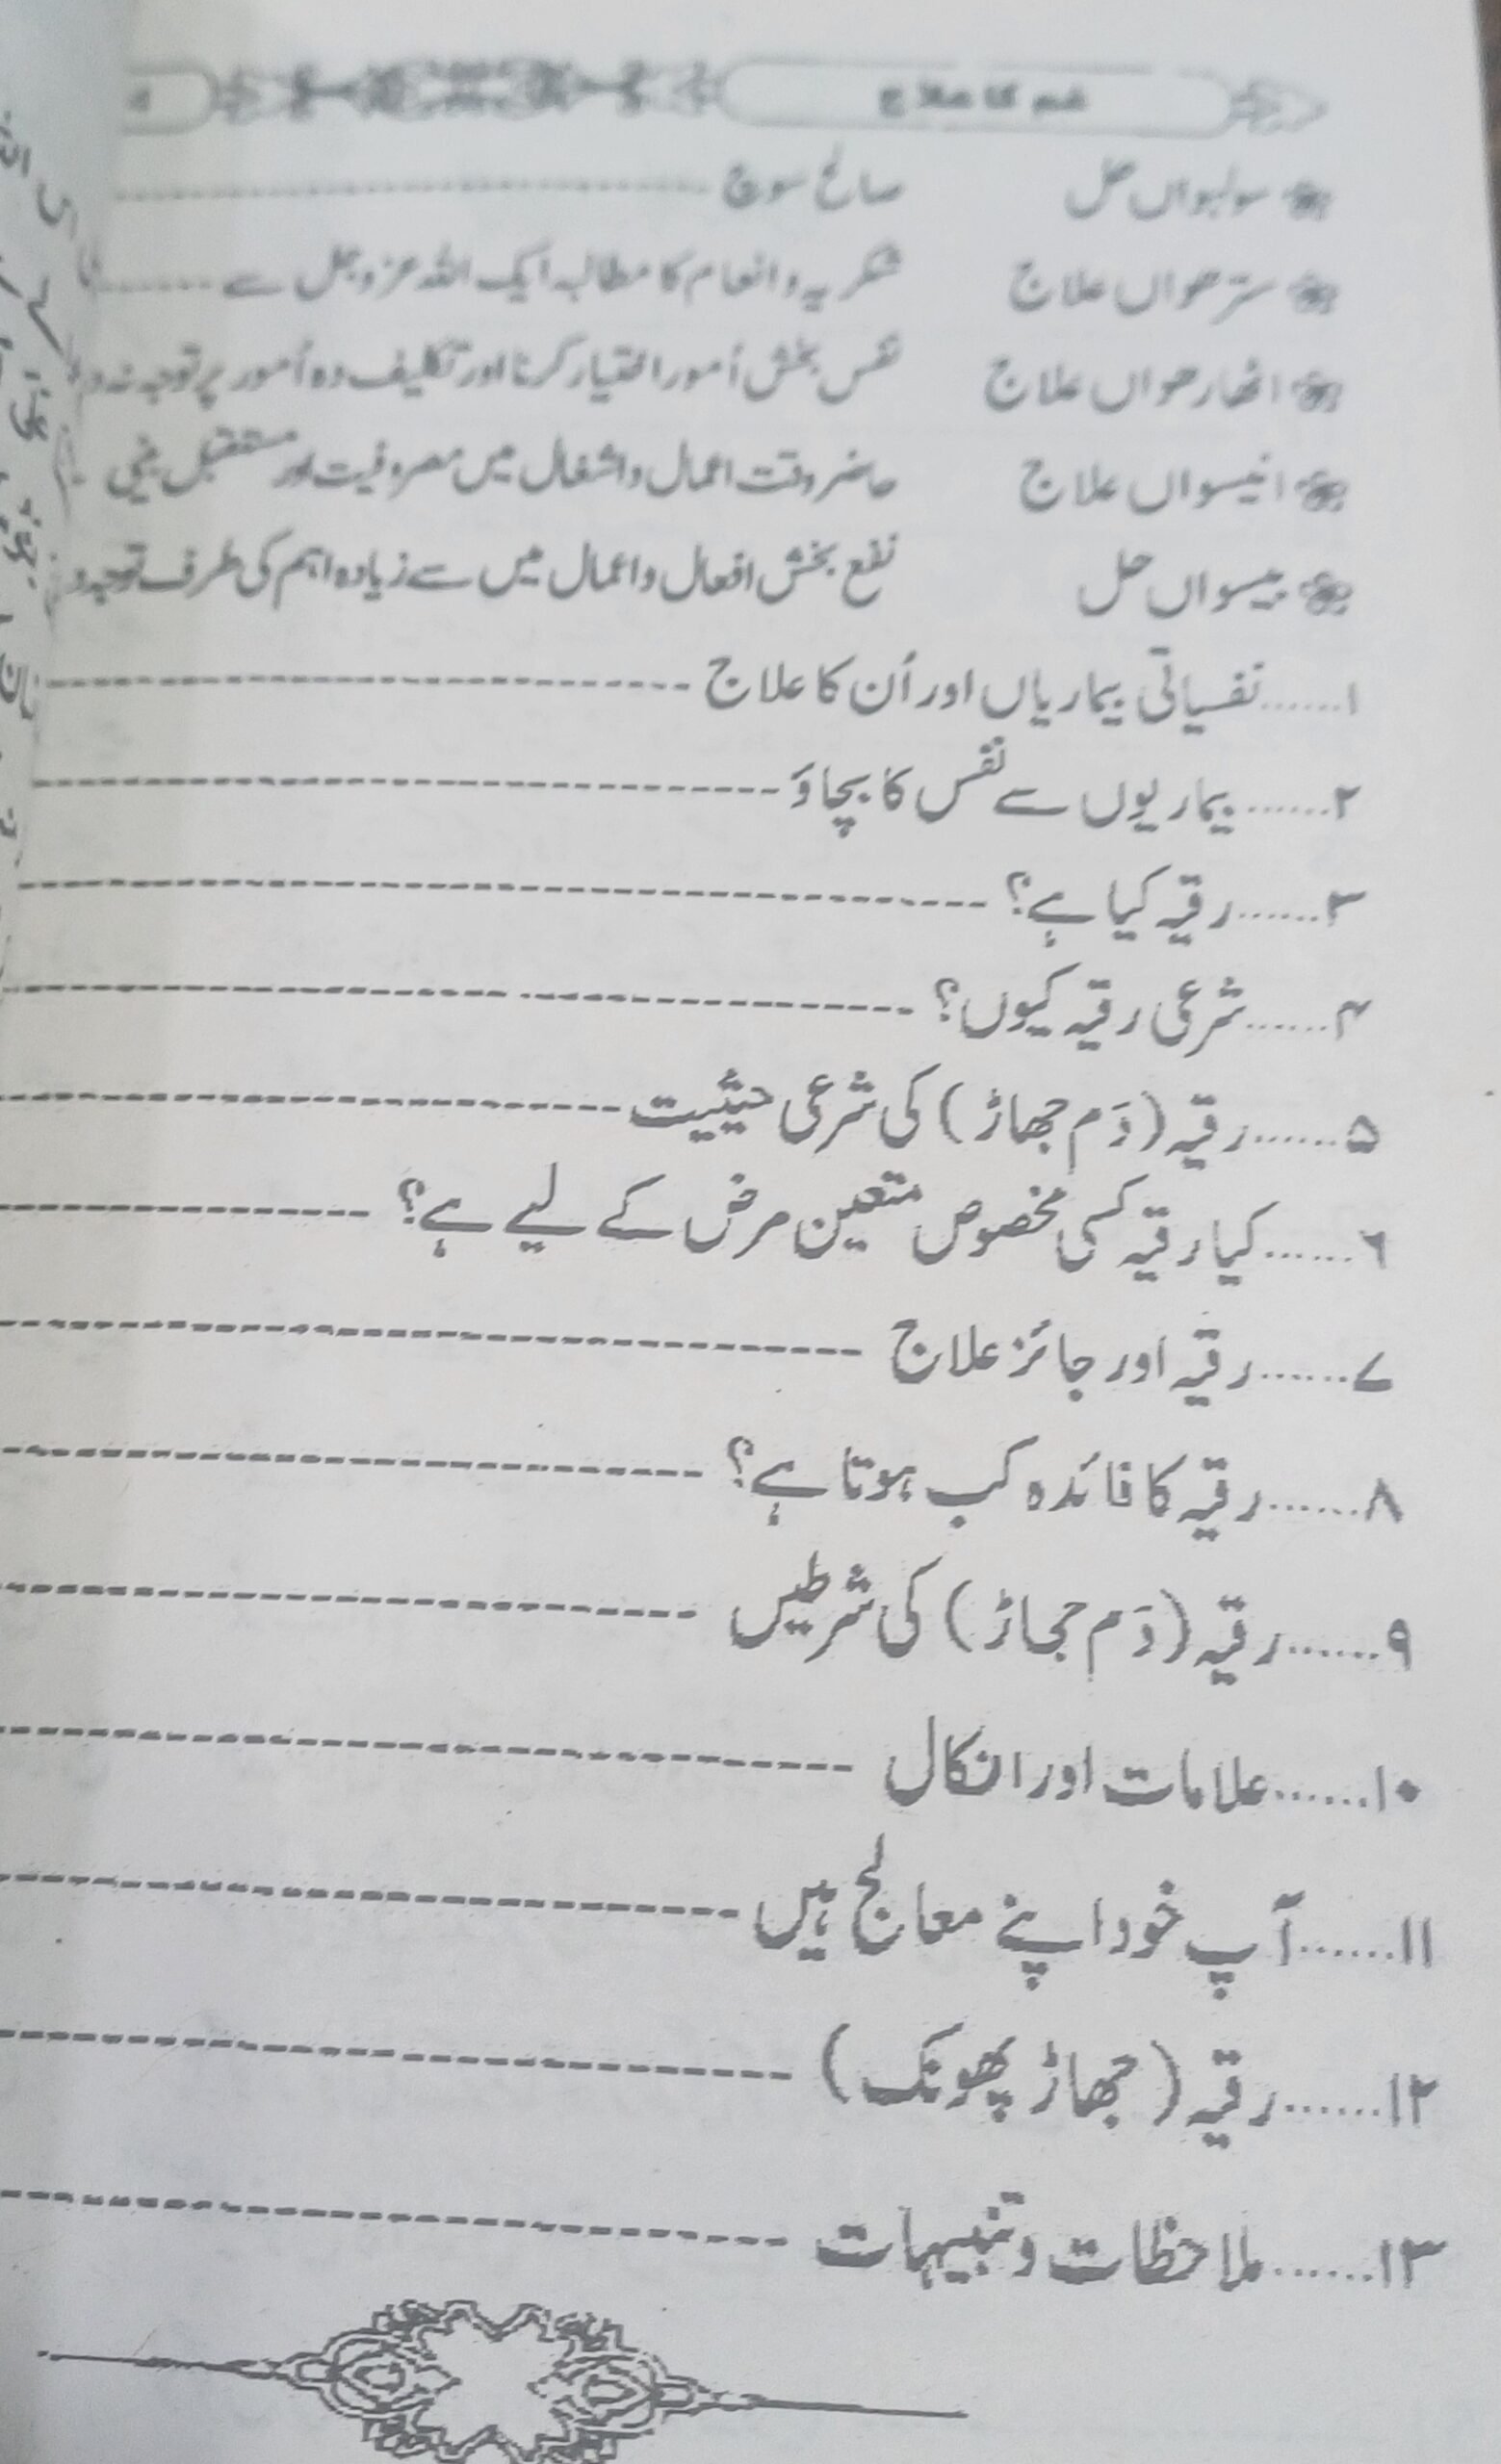 غم کا علاج
سولہواں حل صالح سوچ
سترھواں علاج شکریہ و انعام کا مطالبہ ایک اللہ عز وجل سے
اٹھارھواں علاج نفس بخش اُمور اختیار کرنا اور تکلیف دہ اُمور پر توجہ نہ
انیسواں علاج حاضر وقت اعمال و اشغال میں مصروفیت اور مستقبل بینی
بیسواں حل نفع بخش افعال و اعمال میں سے زیادہ اہم کی طرف توجہ
۱......نفسیاتی بیماریاں اور اُن کا علاج
۲......بیماریوں سے نفس کا بچاؤ
۳......رقیہ کیا ہے؟
۴......شرعی رقیہ کیوں؟
۵......رقیہ (دَم جھاڑ) کی شرعی حیثیت
۶......کیا رقیہ کسی مخصوص متعین مرض کے لیے ہے؟
۷......رقیہ اور جائز علاج
۸......رقیہ کا فائدہ کب ہوتا ہے؟
۹......رقیہ (دَم جھاڑ) کی شرطیں
۱۰......علامات اور انکال
۱۱......آپ خود اپنے معالج ہیں
۱۲......رقیہ (جھاڑ پھونک)
۱۳......ملاحظات و تنبیہات